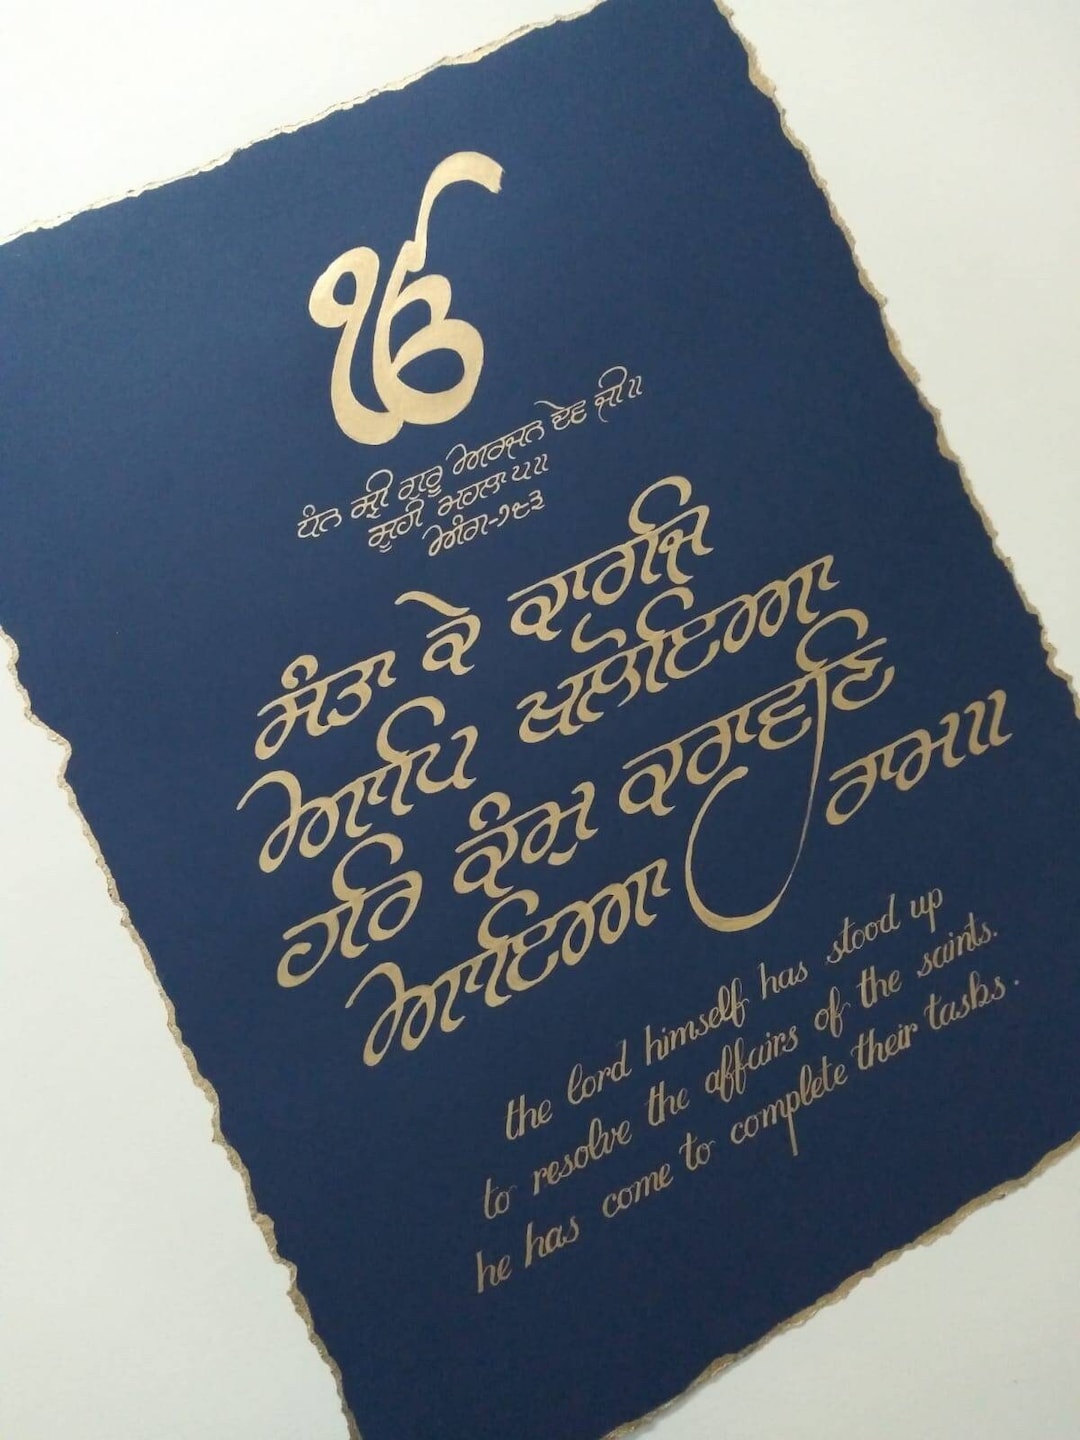 ੴ
ਧੰਨ ਸ੍ਰੀ ਗੁਰੂ ਅਰਜਨ ਦੇਵ ਜੀ॥
ਸੂਹੀ ਮਹਲਾ ੫॥
ਅੰਗ-੭੮੩
ਸੰਤਾ ਕੇ ਕਾਰਜਿ
ਆਪਿ ਖਲੋਇਆ
ਹਰਿ ਕੰਮੁ ਕਰਾਵਣਿ
ਆਇਆ ਰਾਮ॥
the lord himself has stood up
to resolve the affairs of the saints.
he has come to complete their tasks.